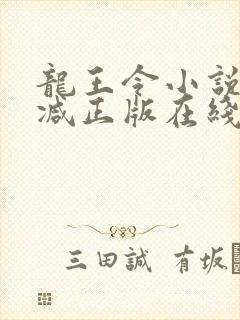 龍王令小説
減正版在綫
三田誠 有坂